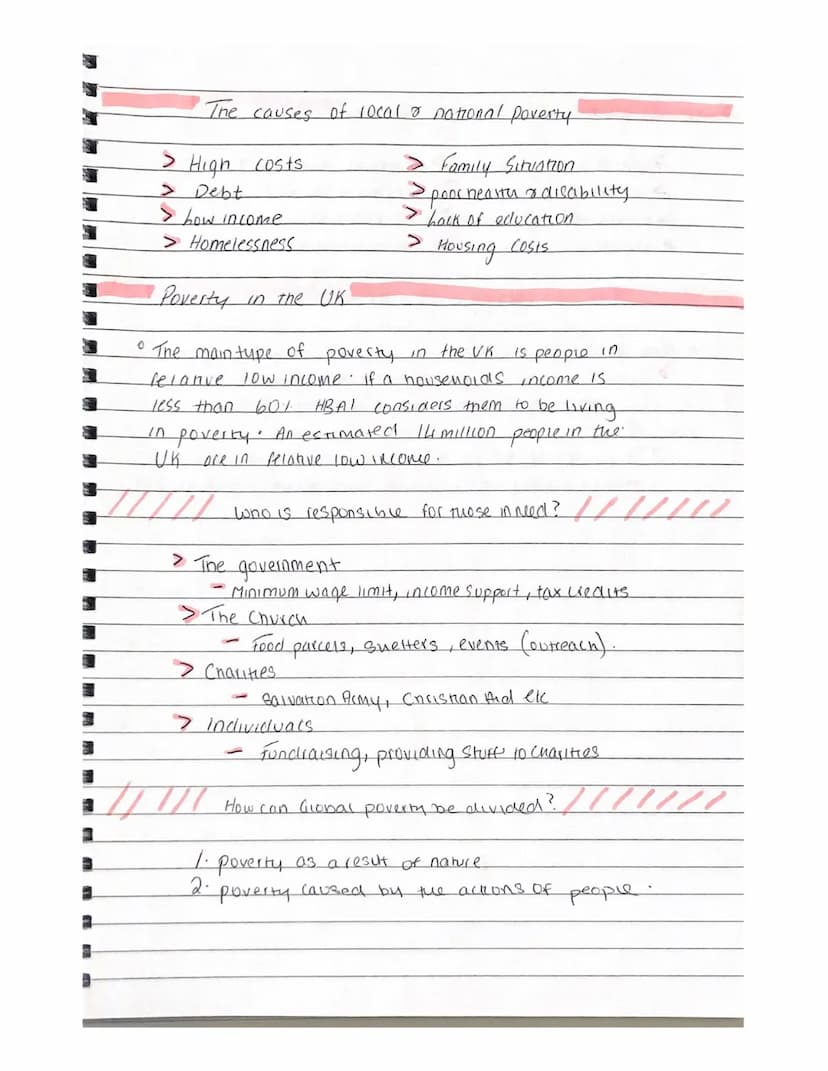 The causes of local & national poverty
> High costs
> Debt
> Low income
> Homelessness
> Family Situation
> poor health & disability
> Lack of education
> Housing Costs
Poverty in the UK
° The main type of poverty in the UK is people in
relative low income. if a households income is
less than 60% HBAI considers them to be living
in poverty. An estimated 14 million people in the
UK are in relative low income.
Who is responsible for those in need?
> The government
- Minimum wage limit, income support, tax credits
> The Church
- Food parcels, shelters, events (outreach).
> Charities
- Salvation Army, Christian Aid etc
> Individuals
- Fundraising, providing stuff to charities
How can Global poverty be divided?
1. poverty as a result of nature
2. poverty caused by the actions of people.